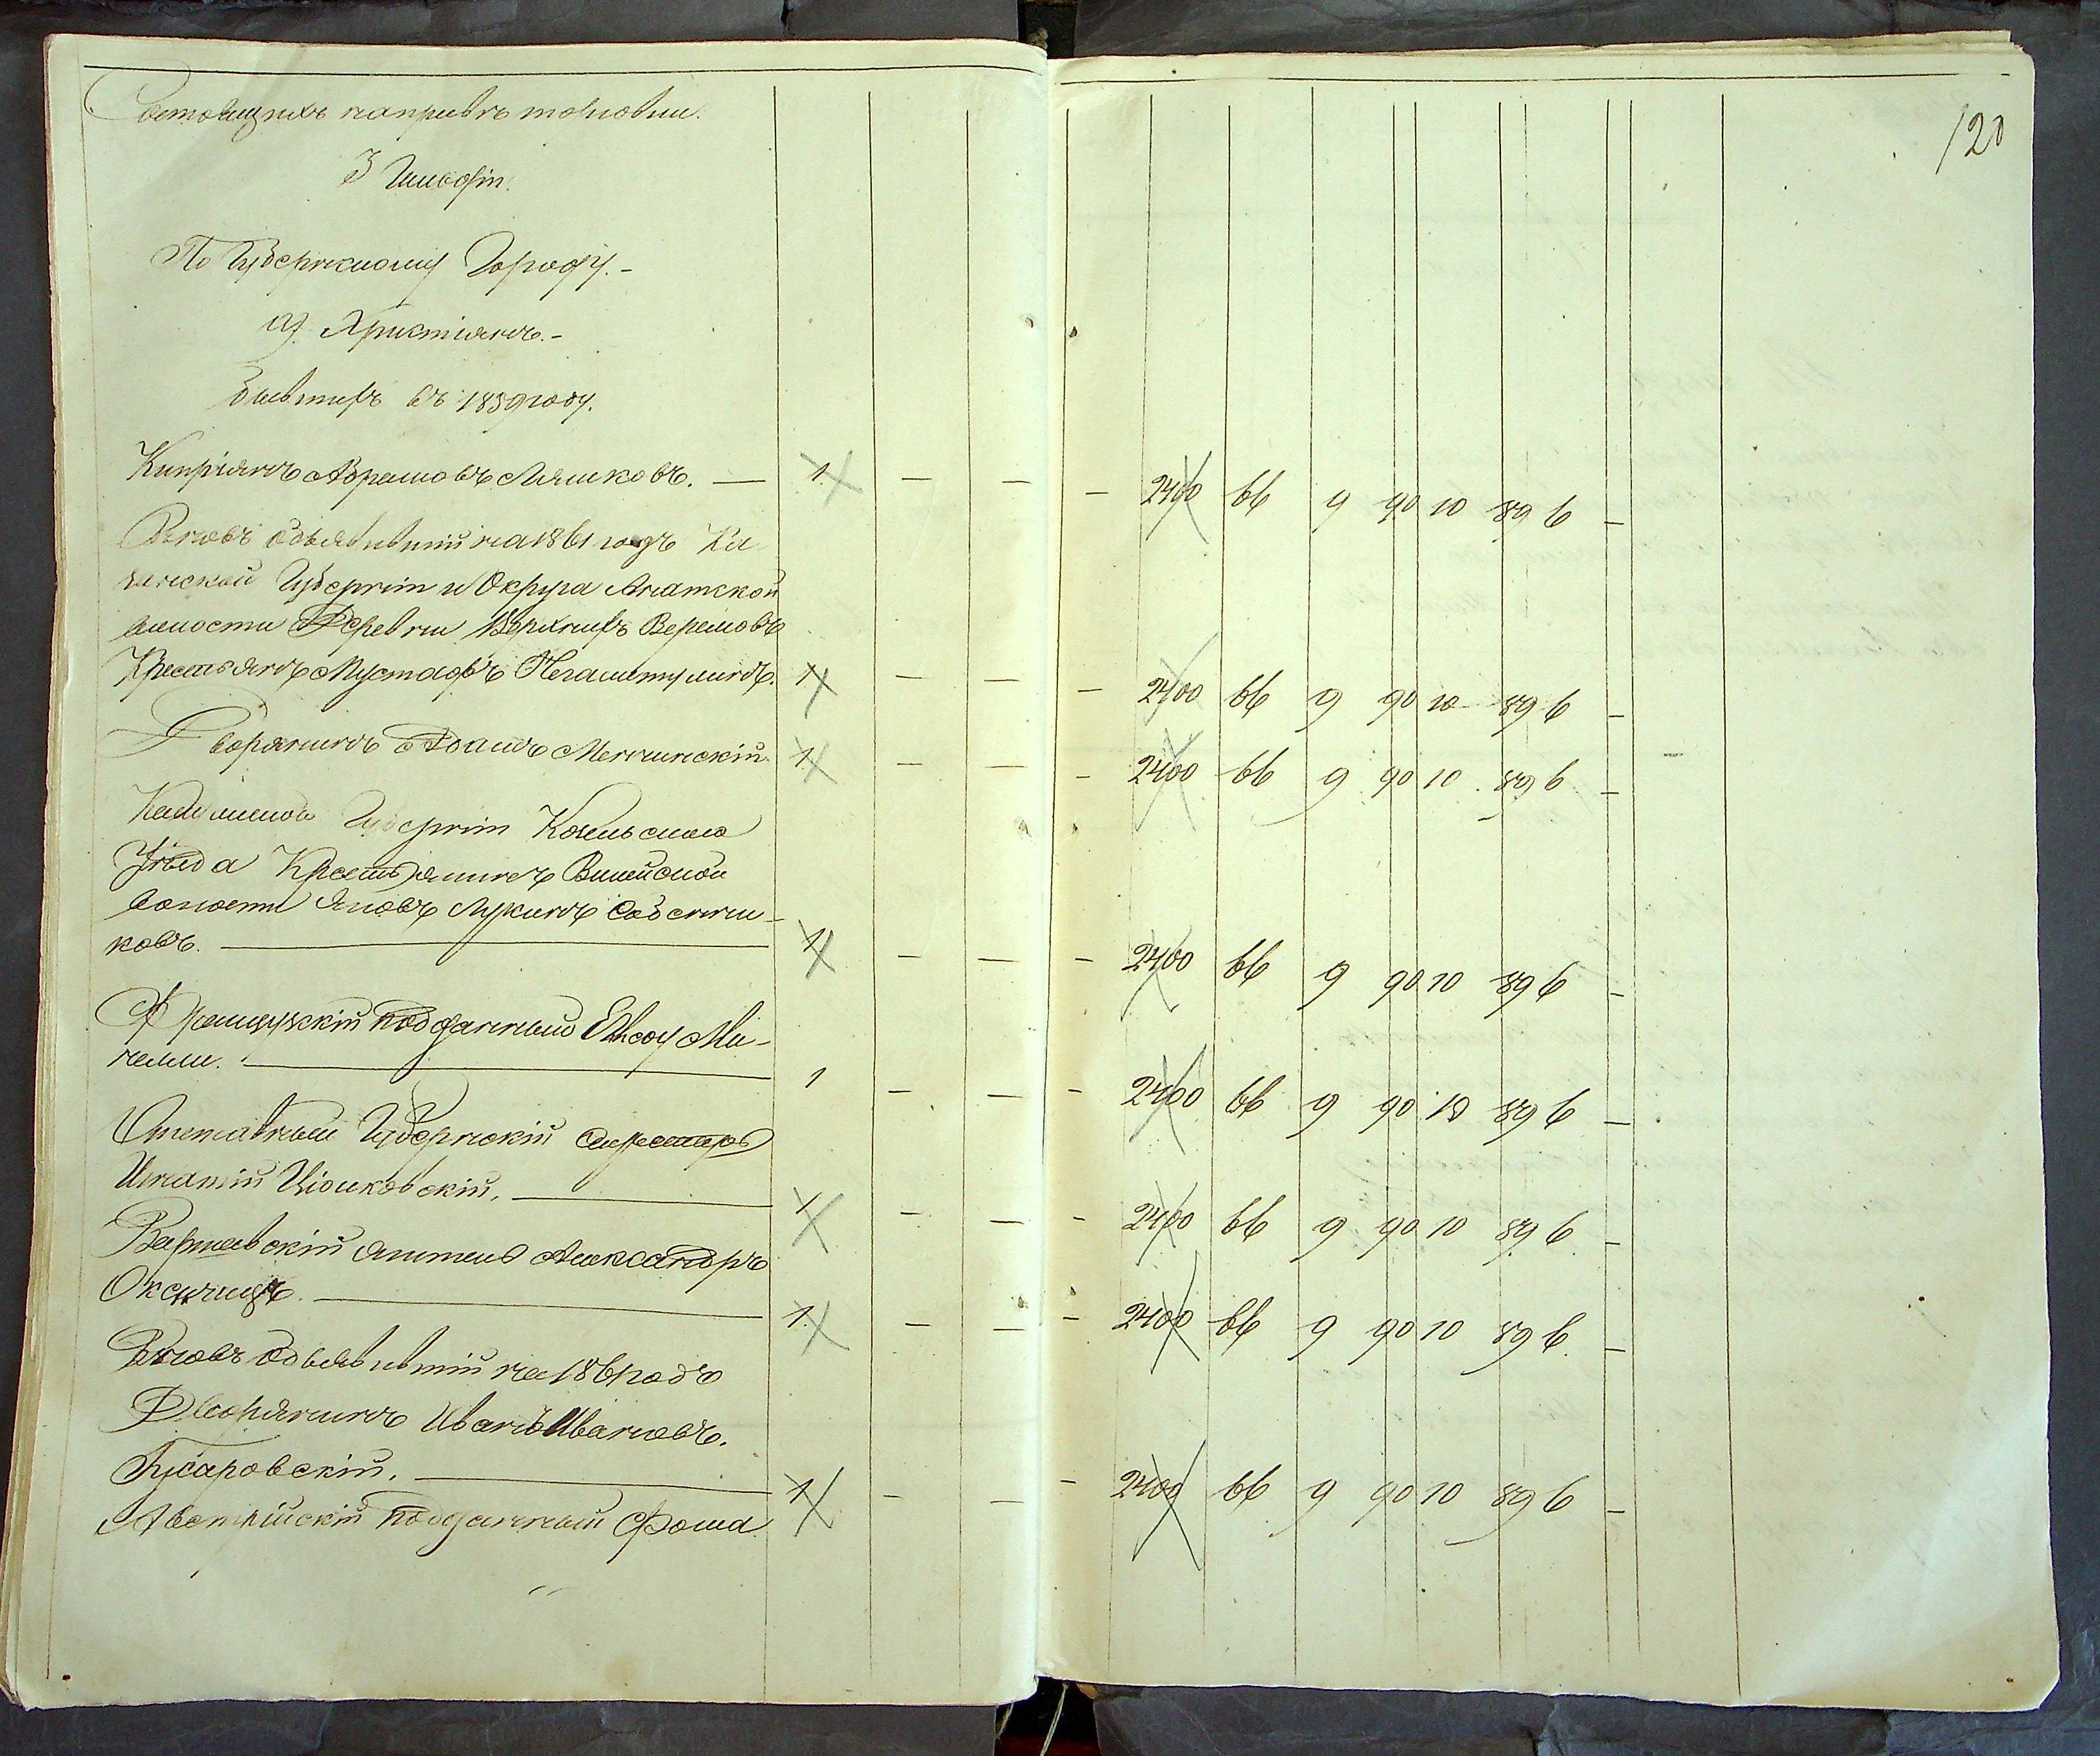 Состоящихъ направѣ торговли.
3 Гильдіи.
По Губернскому Городу.-
а) Христіянъ.-
бывшихъ въ 1859 году.
Кипріянъ Абрамовъ Ляшковъ. — 1 — — — 2400 66 9 90 10 89 6 —
Вновь объявившій на 1861 годъ Ка
занской Губерніи и Округа
волости Деревни Верхнихъ Веремовъ
Крестьянъ Мустафъ 1 — — — 2400 66 9 90 10 89 6 —
Дворянинъ Адамъ Менчинскій. 1 — — — 2400 66 9 90 10 89 6 —
Губерніи
Уѣзда Крестьянинъ
волости Яковъ Лукинъ
ковъ. — 1 — — — 2400 66 9 90 10 89 6 —
Французскій подданный Ми-
— 1 — — — 2400 66 9 90 10 89 6 —
Отставный Губернскій Секретарь
Игнатій — 1 — — — 2400 66 9 90 10 89 6 —
Варшавскій житель Александръ
— 1 — — — 2400 66 9 90 10 89 6 —
Вновь объявившій на 1861 годъ
Дворянинъ Иванъ Ивановъ.
Гусаровскій. — 1 — — — 2400 66 9 90 10 89 6 —
Австрійскій подданный Фома
120